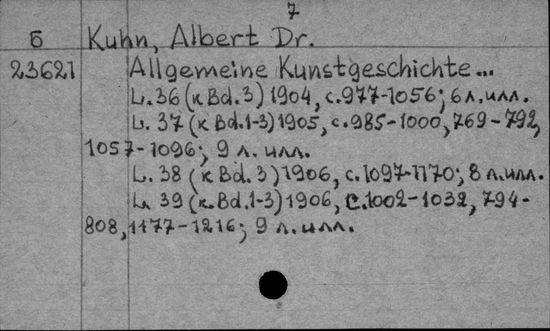 7
б Kuhn, Albert Dr.
23621 Allgemeine Kunstgeschichte...
L. 36 (к Bd. 3) 1904, с. 977-1056; 6 л. илл.
L. 37 (к Bd. 1-3) 1905, с. 985-1000, 769-792,
1057-1096; 9 л. илл.
L. 38 (к Bd. 3) 1906, с. 1097-1170; 8 л. илл.
L. 39 (к. Bd. 1-3) 1906, с. 1002-1032, 794-
808, 1177-1216; 9 л. илл.